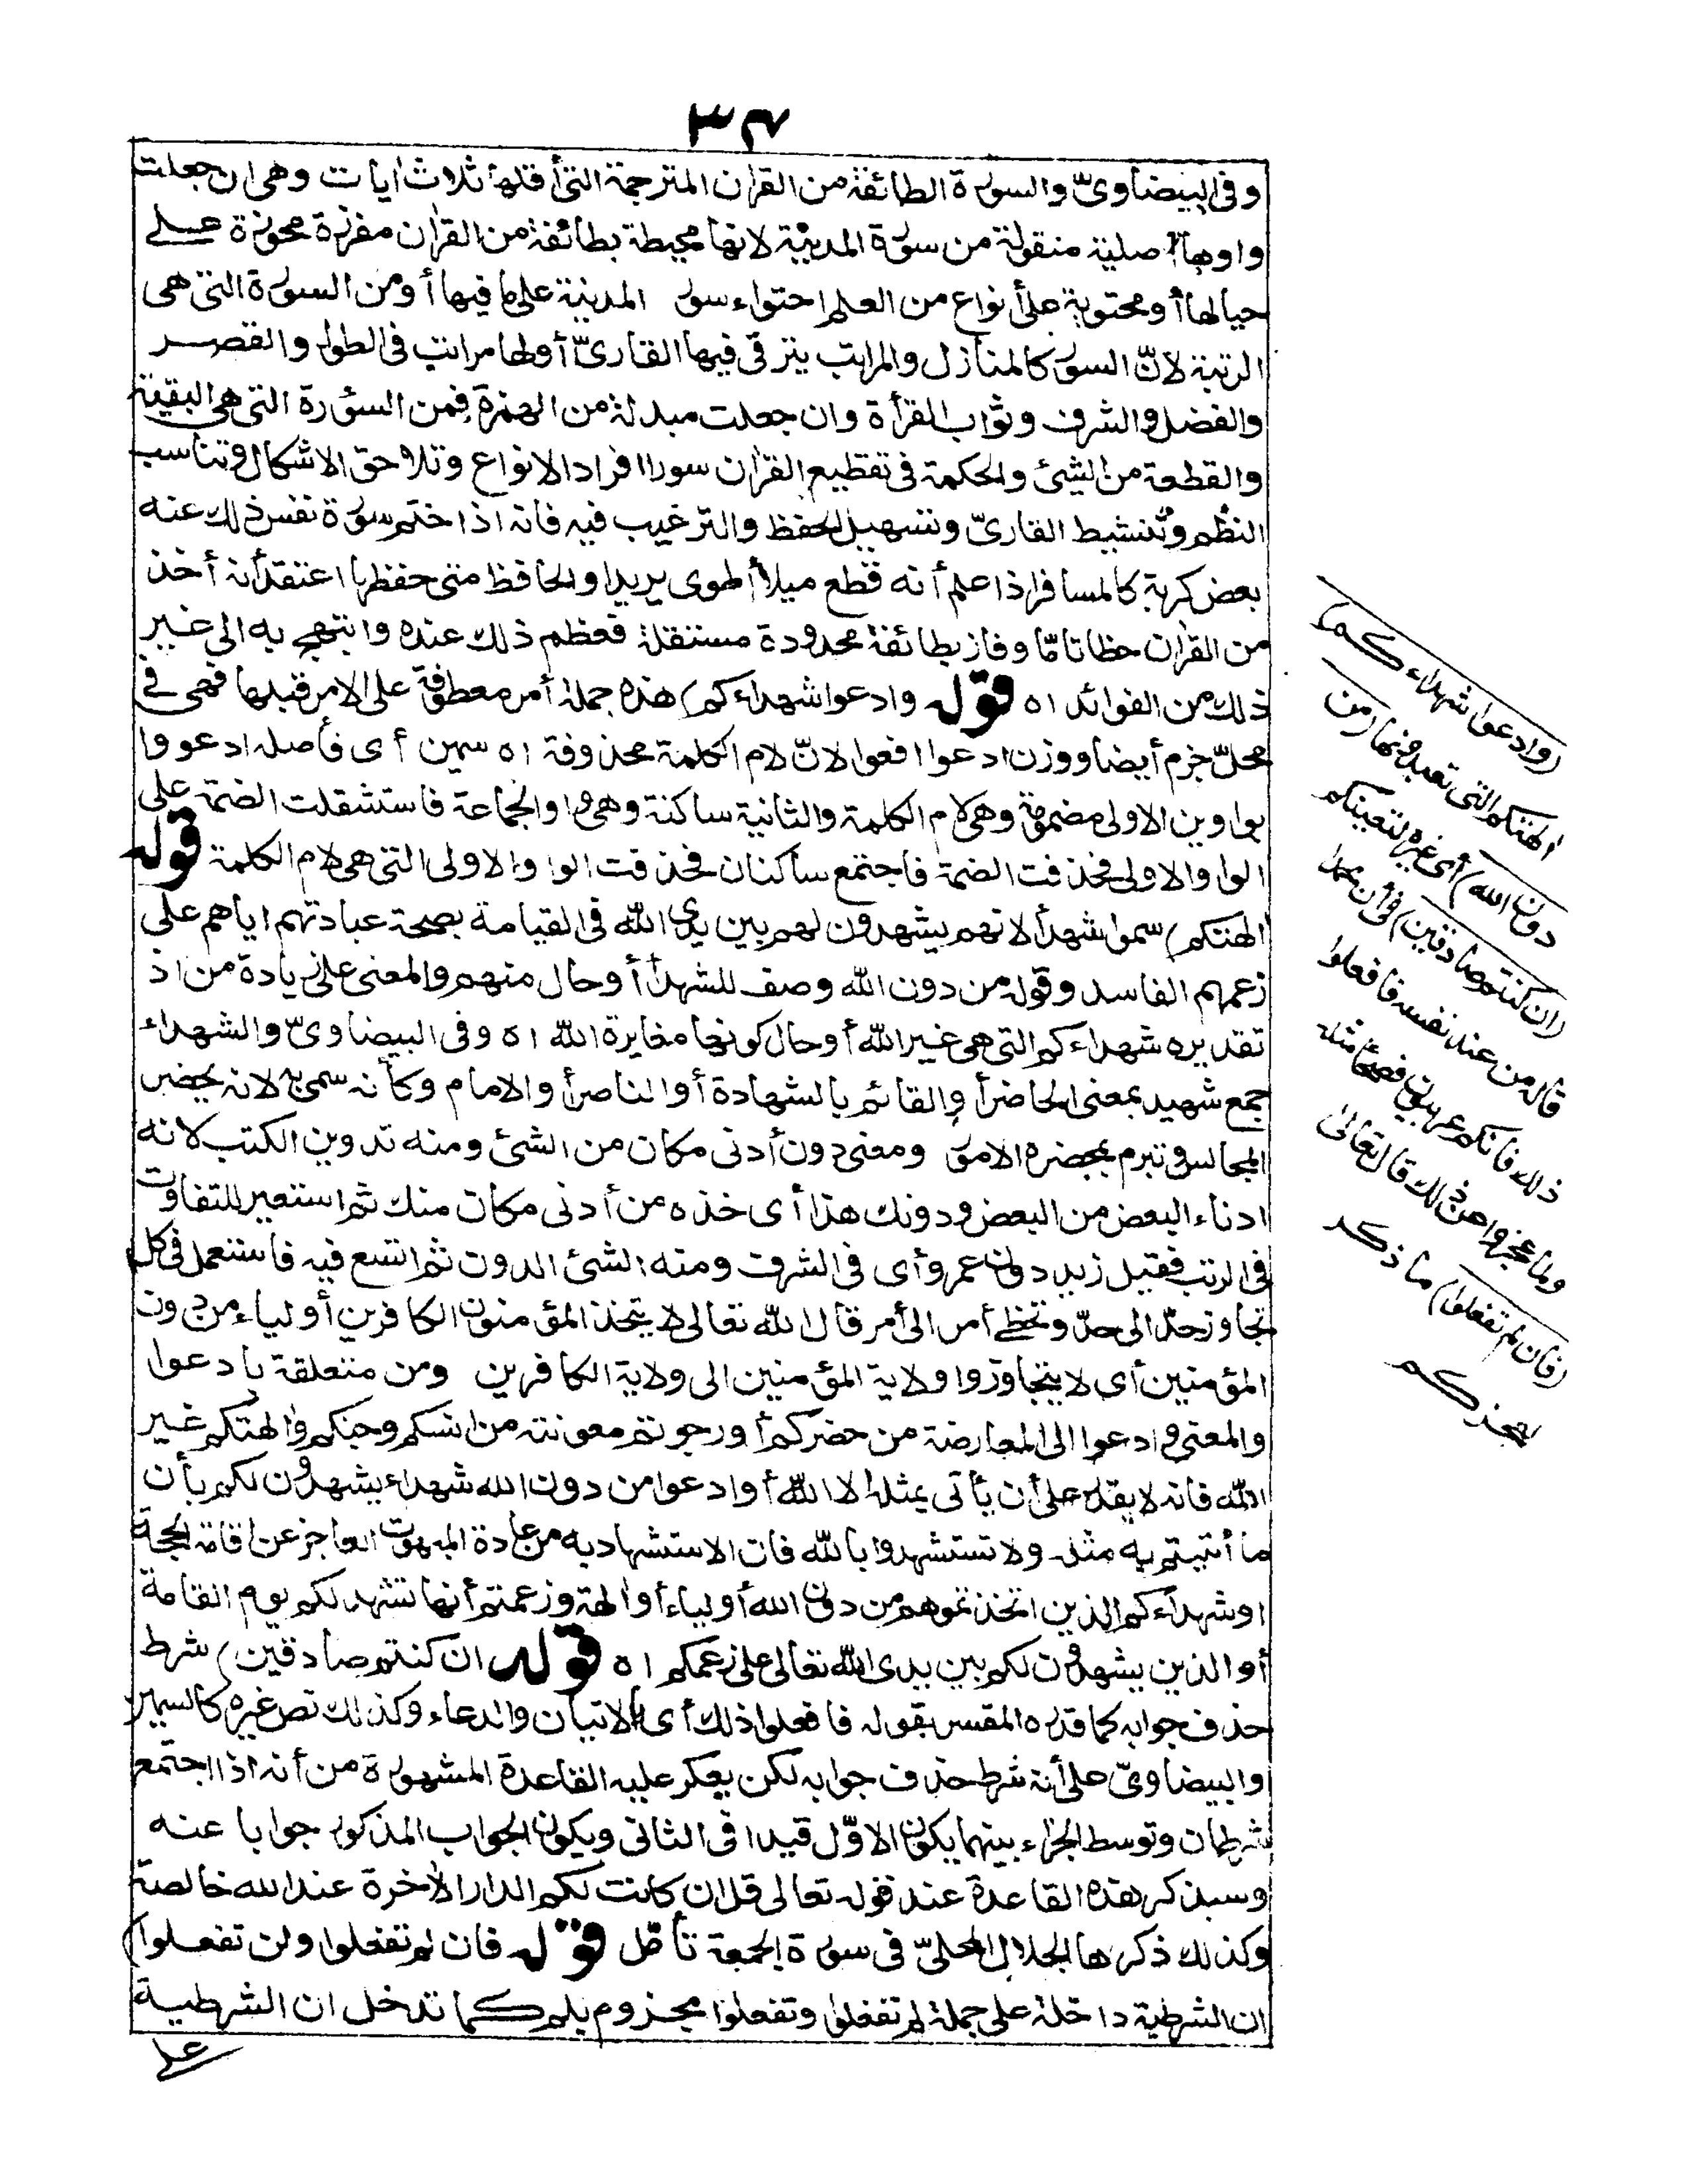 ٣٤
وفى البيضاوىّ والسورة الطائفة من القرآن المترجمة التى أقلها ثلاث آيات وهى ان جعلت
واوها أصلية منقولة من سورة المدينة لانها محيطة بطائفة من القرآن مفرزة محوزة على
حيالها أو محتوية على أنواع من العلم احتواء سور المدينة على ما فيها أو من السورة التى هى
الرتبة لانّ السور كالمنازل والمراتب يترقى فيها القارئ أو لها مراتب فى الطول والقصر
والفضل والشرف وثواب القرأة وان جعلت مبدلة من الهمزة فمن السؤرة التى هى البقية
والقطعة من الشئ والحكمة فى تقطيع القرآن سورا افراد الانواع وتلاحق الاشكال وتناسب
النظم وتنشيط القارئ وتسهيل الحفظ والترغيب فيه فانه اذا ختم سورة نفس ذلك عنه
بعض كربة كالمسافر اذا علم أنه قطع ميلا أو طوى بريدا والحافظ متى حفظها اعتقد أنه أخذ
من القرآن حظا تامّا وفاز بطائفة محدودة مستقلة فعظم ذلك عنده وابتهج به الى غير
ذلك من الفوائد اه قوله وادعوا شهداءكم) هذه جملة أمر معطوفة على الامر قبلها فهى فى
محلّ جزم أيضا ووزن ادعوا افعوا لانّ لام الكلمة محذوفة اه سمين أى فأصله ادعووا
بواوين الاولى مضمومة وهى لام الكلمة والثانية ساكنة وهى واو الجماعة فاستثقلت الضمة على
الواو الاولى فحذفت الضمة فاجتمع ساكنان فحذفت الواو الاولى التى هى لام الكلمة قوله
آلهتكم) سموا شهدأ لانهم يشهدون لهم بين يدى الله فى القيامة بصحة عبادتهم اياهم على
زعمهم الفاسد وقوله من دون الله وصف للشهدأ أو حال منهم والمعنى على زيادة من اذ
تقديره شهداءكم التى هى غير الله أو حال كونها مغايرة الله اه وفى البيضاوىّ والشهداء
جمع شهيد بمعنى الحاضر أو القائم بالشهادة أو الناصر أو الامام وكأنه سمى به لانه يحضر
المجالس وتبرم بحضرة الامور ومعنى دون أدنى مكان من الشئ ومنه تدوين الكتب لانه
ادناء البعض من البعض ودونك هذا أى خذه من أدنى مكان منك ثم استعير للتفاوت
فى الرتب فقيل زيد دون عمرو أى فى الشرف ومنه الشئ الدون ثم اتسع فيه فاستعمل فى كل
تجاوز حدّ الى حدّ وتخطى أمر الى أمر قال الله تعالى لا يتخذ المؤمنون الكافرين أولياء من دون
المؤمنين أى لا يتجاوزوا ولاية المؤمنين الى ولاية الكافرين ومن متعلقة بادعوا
والمعنى وادعوا الى المعارضة من حضركم أو رجوتم معونته من انسكم وجنكم وآلهتكم غير
الله فانه لا يقدر على أن يأتى بمثله الا الله أو ادعوا من دون الله شهداء يشهدون لكم بأن
ما أتيتم به مثله ولا تستشهدوا بالله فان الاستشهاد به من عادة المبهوت العاجز عن اقامة الحجة
او شهداءكم الذين اتخذتموهم من دون الله أولياء أو آلهة وزعمتم أنها تشهد لكم يوم القامة
أو الذين يشهدون لكم بين يدى الله تعالى على زعمكم اه قوله ان كنتم صادقين) شرط
حذف جوابه كما قدره المفسر بقوله فافعلوا ذلك أى الاتيان والدعاء وكذلك نص غيره كالسمين
والبيضاوىّ على أنه شرط حذف جوابه لكن يعكر عليه القاعدة المشهورة من أنه اذا اجتمع
شرطان وتوسط الجزاء بينهما يكون الاوّل قيدا فى الثانى ويكون الجواب المذكور جوابا عنه
وسيذكر هذه القاعدة عند قوله تعالى قل ان كانت لكم الدار الآخرة عند الله خالصة
وكذلك ذكرها الجلال المحلىّ فى سورة الجمعة تأمّل قوله فان لم تفعلوا ولن تفعلوا)
ان الشرطية داخلة على جملة لم تفعلوا وتفعلوا مجزوم بلم كما تدخل ان الشرطية
على
(وادعوا شهداءكم)
آلهتكم التى تعبدونها (من
دون الله) أى غيره لتعينكم
(ان كنتم صادقين) فى أن محمدا
قاله من عند نفسه فافعلوا
ذلك فانكم عربيون فصحاء مثله
ولما عجزوا عن ذلك قال تعالى
(فان لم تفعلوا) ما ذكر
لعجزكم